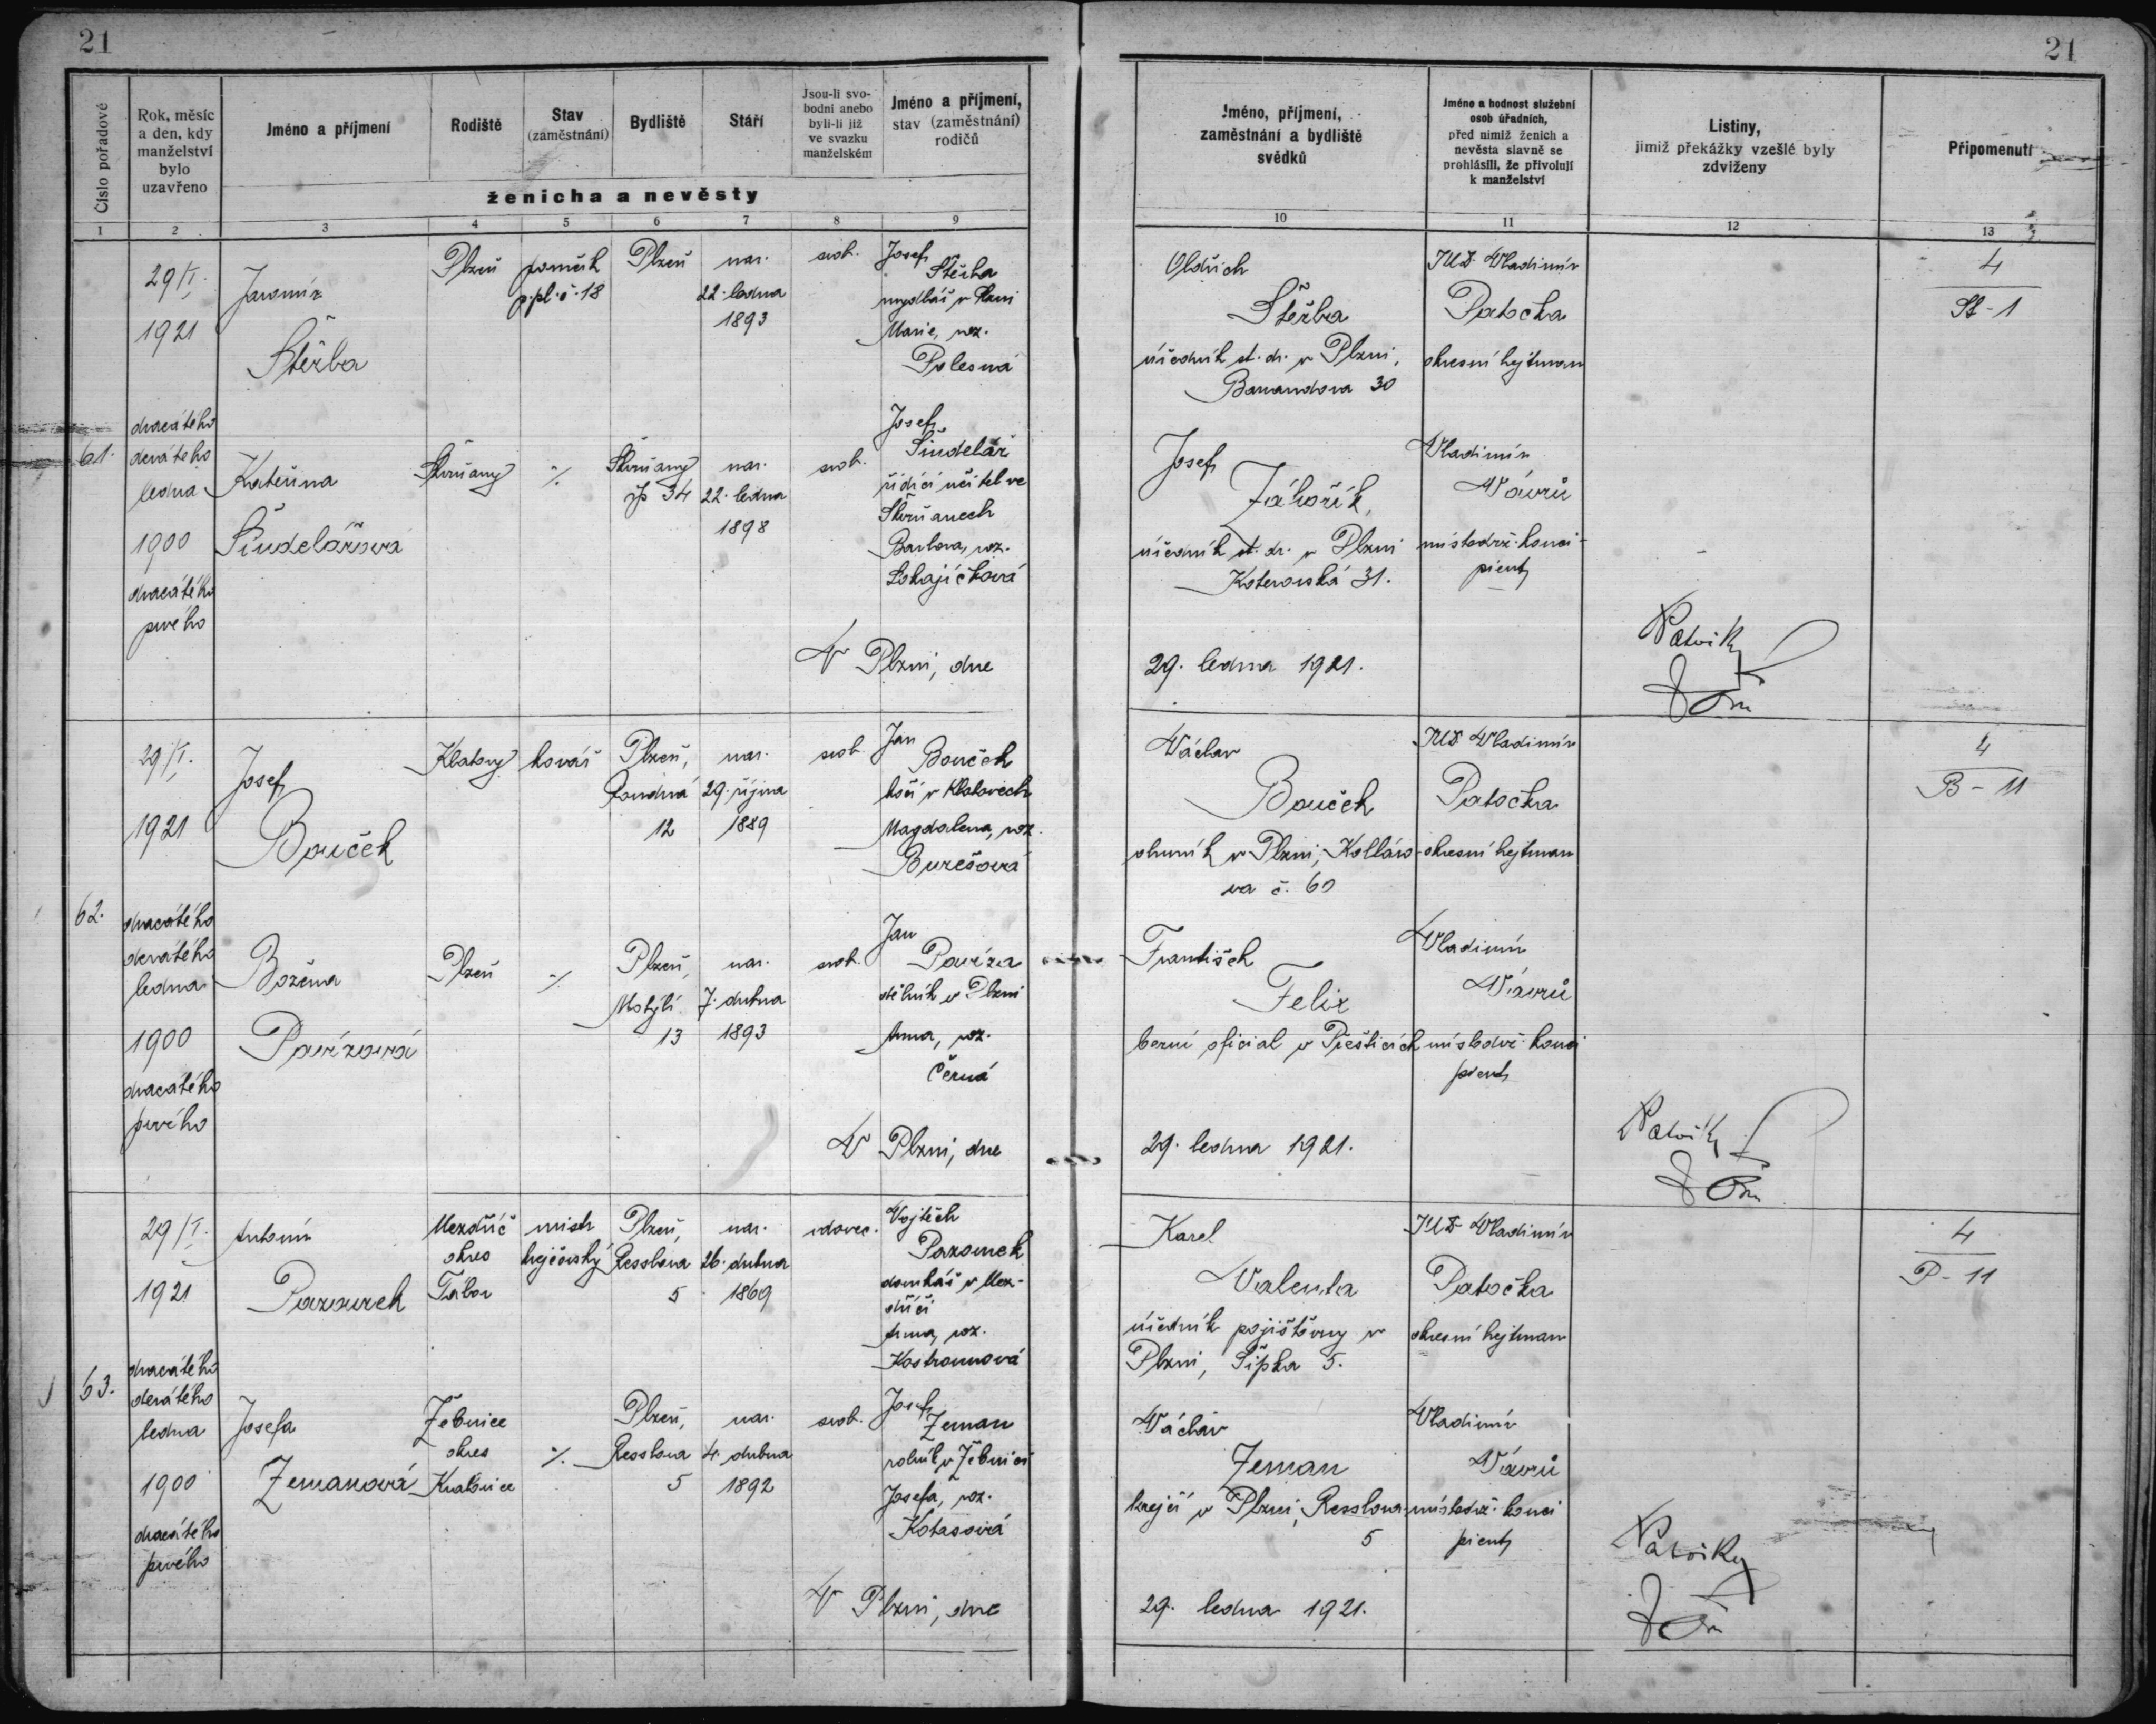 21
21
Číslo pořadové
Rok, měsíc
a den, kdy
manželství
bylo
uzavřeno
Jméno a příjmení
Rodiště
Stav
(zaměstnání)
Bydliště
Stáří
Jsou-li svo-
bodni anebo
byli-li již
ve svazku
manželském
Jméno a příjmení,
stav (zaměstnání)
rodičů
ženicha a nevěsty
Jméno, příjmení,
zaměstnání a bydliště
svědků
Jméno a hodnost služební
osob úřadních,
před nimiž ženich a
nevěsta slavně se
prohlásili, že přivolují
k manželství
Listiny,
jimiž překážky vzešlé byly
zdviženy
Připomenutí
1 2 3 4 5 6 7 8 9 10 11 12 13
61.
29/I.
1921
dvacátého
devátého
ledna
1900
dvacátého
prvého
Jaromír
Štěrba
Plzeň
poručík
p. pl. č. 18
Plzeň
nar.
22. ledna
1893
svob.
Josef
Štěrba
mydlář v Plzni
Marie, roz.
Polesná
Kateřina
Šindelářová
Škvrňany
./.
Škvrňany
čp 34
nar.
22. ledna
1898
svob.
Josef
Šindelář
řídící učitel ve
Škvrňanech
Barbora, roz.
Lokajíčková
V Plzni, dne
Oldřich
Štěrba
úředník st. dr. v Plzni,
Barrandova 30
Josef
Záhořík,
úředník st. dr. v Plzni
Koterovská 31.
29. ledna 1921.
JUD Vladimír
Patočka
okresní hejtman
Vladimír
Vávrů
místodrž. konci-
pient
4
St - 1
62.
29/I.
1921
dvacátého
devátého
ledna
1900
dvacátého
prvého
Josef
Bouček
Klatovy
kovář
Plzeň,
Poudná
12
nar.
29. října
1889
svob.
Jan
Bouček
kočí v Klatovech
Magdalena, roz.
Burešová
Božena
Pavízová
Plzeň
./.
Plzeň,
Motýlí
13
nar.
7. dubna
1893
svob.
Jan
Pavíza
dělník v Plzni
Anna, roz.
Černá
V Plzni, dne
Václav
Bouček
obuvník v Plzni, Kolláro-
va č. 60
František
Felix
berní oficial v Přešticích
29. ledna 1921.
JUD Vladimír
Patočka
okresní hejtman
Vladimír
Vávrů
místodrž. konci
pient
4
B - 11
63.
29/I.
1921
dvacátého
devátého
ledna
1900
dvacátého
prvého
Antonín
Pazourek
Mezdříč
okres
Tábor
mistr
krejčovský
Plzeň,
Resslova
5
nar.
26. dubna
1869
vdovec.
Vojtěch
Pazourek
domkář v Mez-
dříči
Anna, roz.
Kostrounová
Josefa
Zemanová
Žebnice
okres
Kralovice
./.
Plzeň,
Resslova
5
nar.
4. dubna
1892
svob.
Josef
Zeman
rolník v Žebnici
Josefa, roz.
Kotasová
V Plzni, dne
Karel
Valenta
úředník pojišťovny v
Plzni, Šipka 5.
Václav
Zeman
krejčí v Plzni, Resslova
5
29. ledna 1921.
JUD Vladimír
Patočka
okresní hejtman
Vladimír
Vávrů
místodrž. konci
pient
4
P - 11